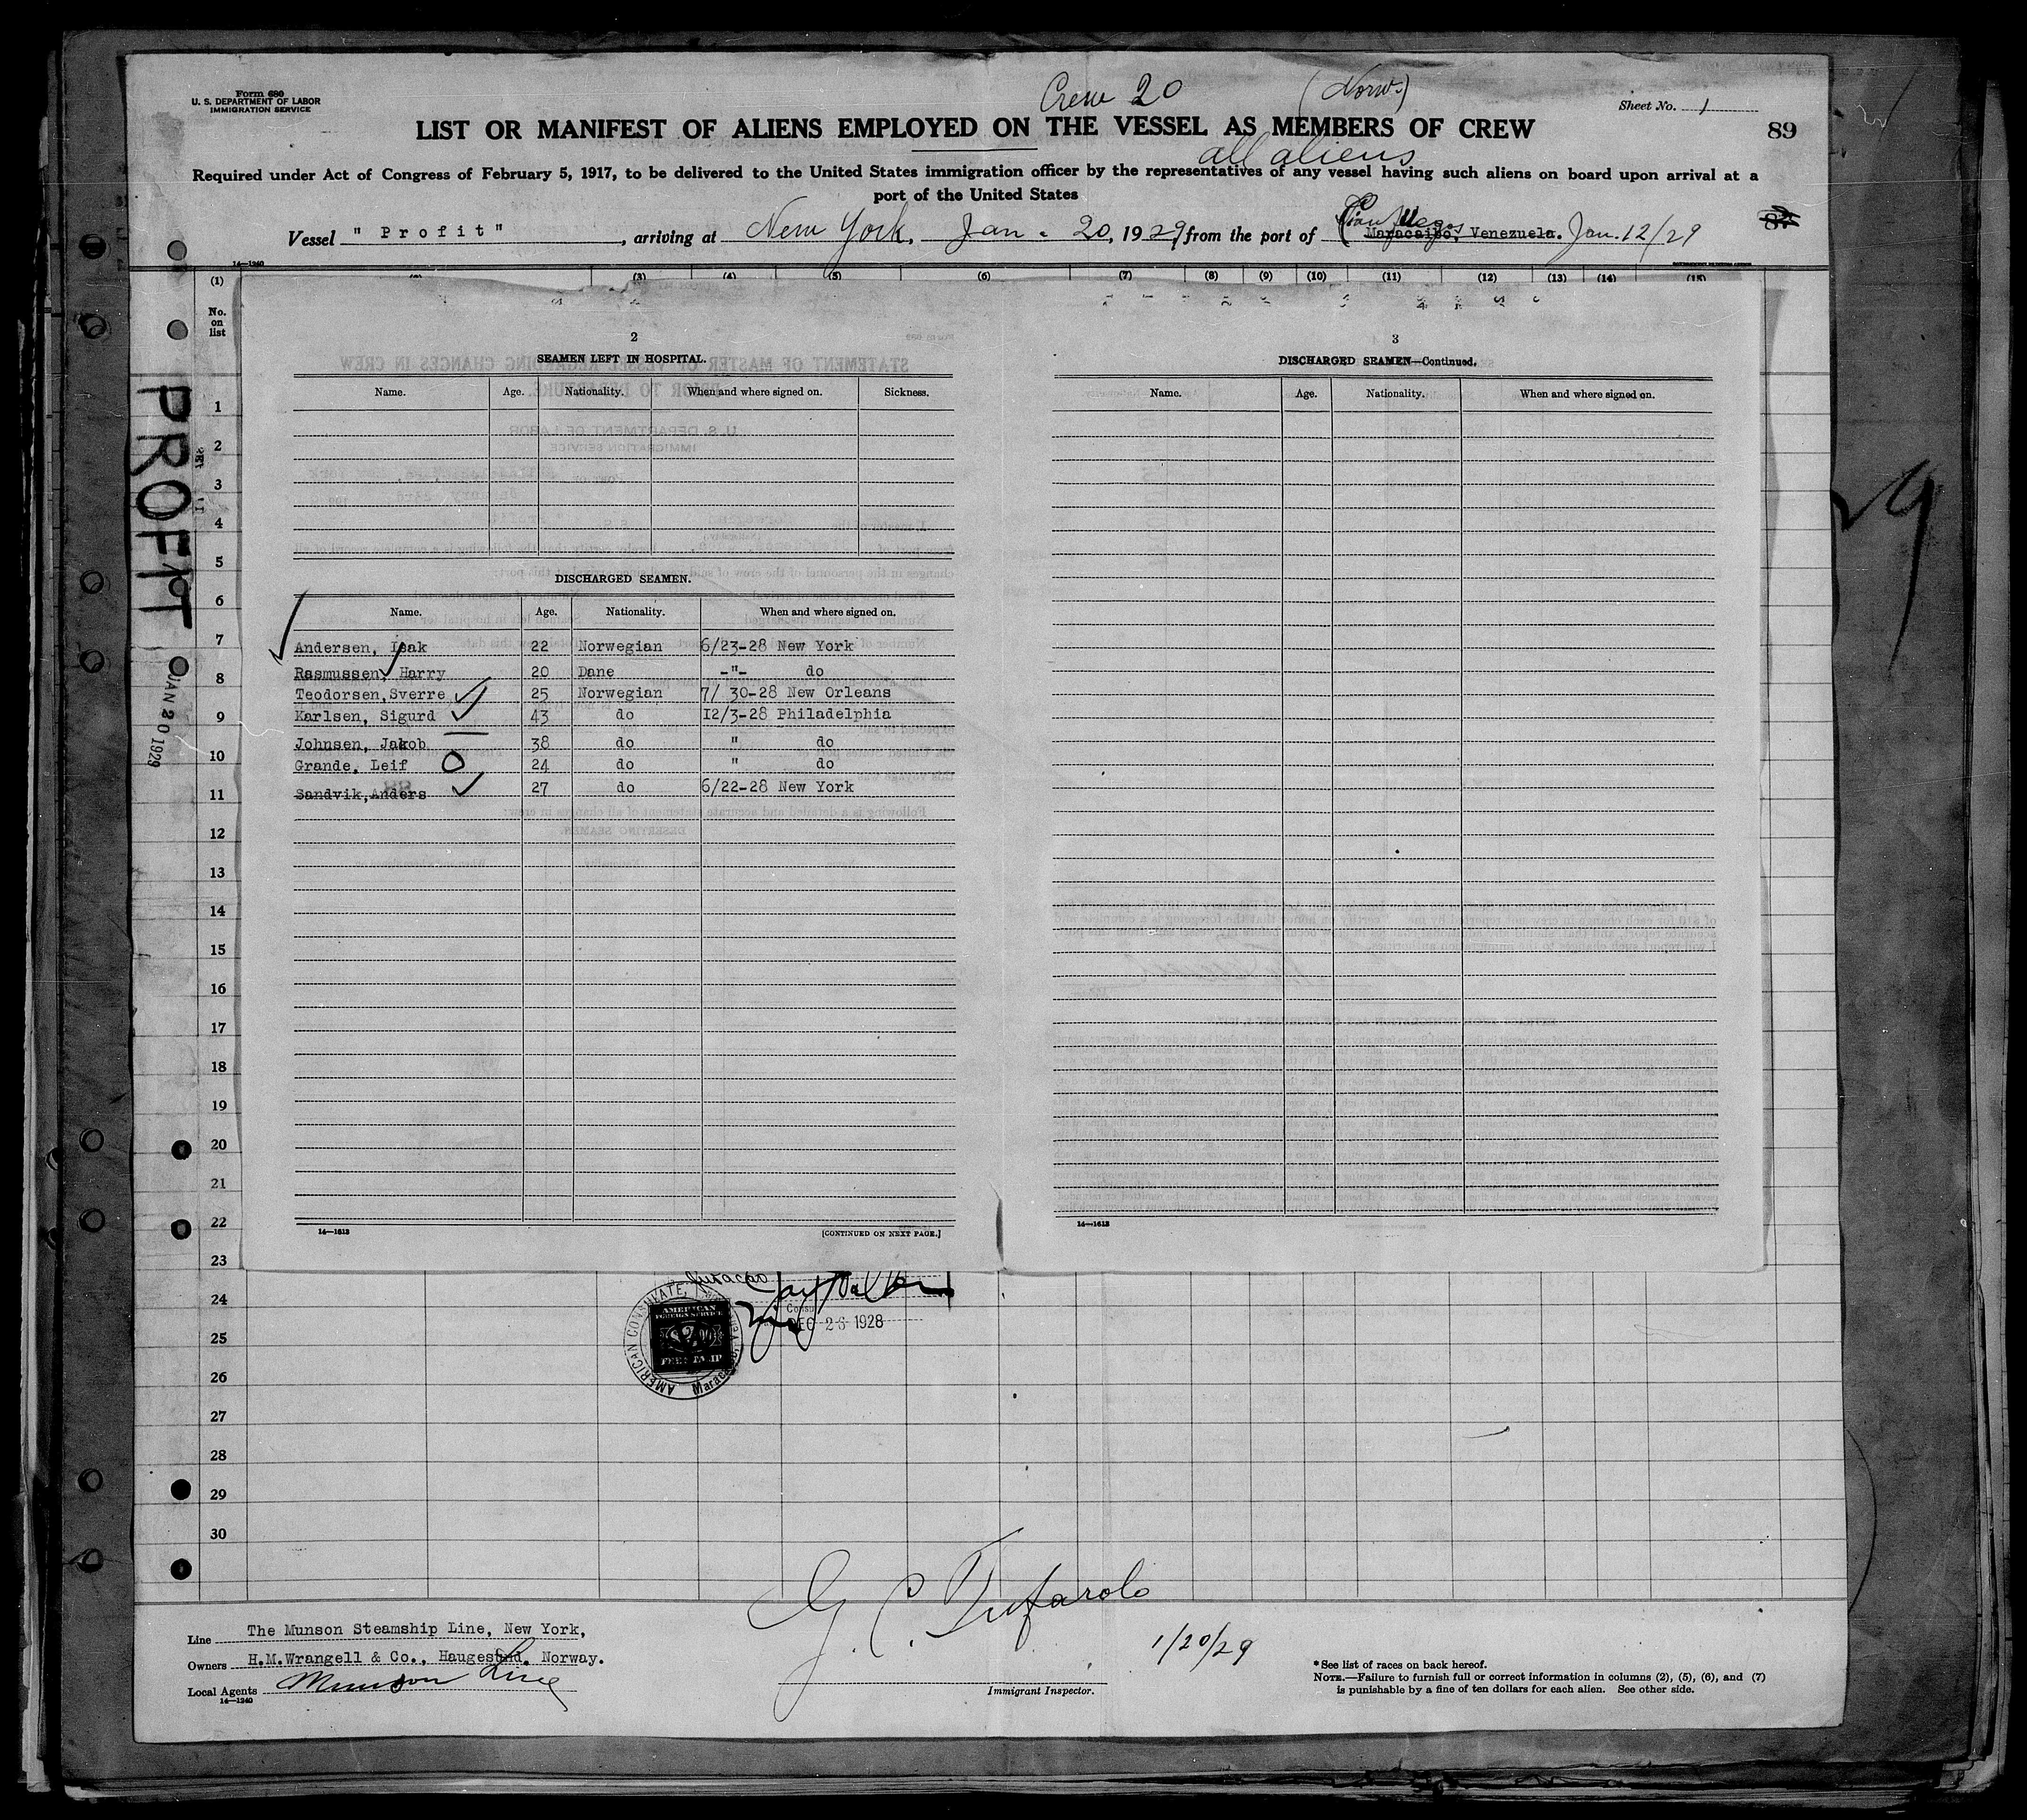 Form 680
U. S. DEPARTMENT OF LABOR
IMMIGRATION SERVICE
Crew 20 (Norw.)
Sheet No. 1
LIST OR MANIFEST OF ALIENS EMPLOYED ON THE VESSEL AS MEMBERS OF CREW
89
all aliens
Required under Act of Congress of February 5, 1917, to be delivered to the United States immigration officer by the representatives of any vessel having such aliens on board upon arrival at a
port of the United States
Cienfuegos
87
Vessel "Profit", arriving at New York, Jan. 20, 1929, from the port of Maracaibo, Venezuela. Jan. 12/29
14—1240
(1) (3) (4) (5) (6) (7) (8) (9) (10) (11) (12) (13) (14) (15)
No. on list
PROFIT
JAN 20 1929
29
2
SEAMEN LEFT IN HOSPITAL.
Name. Age. Nationality. When and where signed on. Sickness.
DISCHARGED SEAMEN.
Name. Age. Nationality. When and where signed on.
Andersen, Isak 22 Norwegian 6/23-28 New York
Rasmussen, Harry 20 Dane -"- do
Teodorsen,Sverre 25 Norwegian 7/ 30-28 New Orleans
Karlsen, Sigurd 43 do 12/3-28 Philadelphia
Johnsen, Jakob 38 do " do
Grande, Leif 24 do " do
Sandvik,Anders 27 do 6/22-28 New York
14—1613
[CONTINUED ON NEXT PAGE.]
3
DISCHARGED SEAMEN—Continued.
Name. Age. Nationality. When and where signed on.
14—1613
1
2
3
4
5
6
7
8
9
10
11
12
13
14
15
16
17
18
19
20
21
22
23
24
25
26
27
28
29
30
Curacao
AMERICAN CONSULATE,
AMERICAN
FOREIGN SERVICE
FEE STAMP
DEC 26 1928
G. C. Tufarolo
1/20/29
Immigrant Inspector.
Line The Munson Steamship Line, New York,
Owners H.M.Wrangell & Co., Haugesund. Norway.
Local Agents Munson Line
14—1240
* See list of races on back hereof.
NOTE.—Failure to furnish full or correct information in columns (2), (5), (6), and (7)
is punishable by a fine of ten dollars for each alien. See other side.